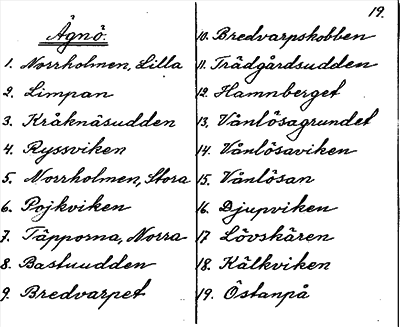 19.
Ägnö.
1. Norrholmen, Lilla
2. Limpan
3. Kråknäsudden
4. Ryssviken
5. Norrholmen, Stora
6. Pojkviken
7. Täpporna, Norra
8. Bastuudden
9. Bredvarpet
10. Bredvarpskobben
11. Trädgårdsudden
12. Hamnberget
13. Vånlösagrundet
14. Vånlösaviken
15. Vånlösan
16. Djupviken
17 Lövskären
18. Kälkviken
19. Östanpå